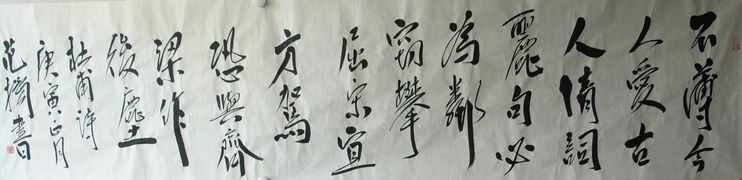 不薄今
人愛古
人清詞
麗句必
為鄰
竊攀
屈宋宜
方駕
恐與齊
梁作
後塵
杜甫詩
庚寅 月
范 書